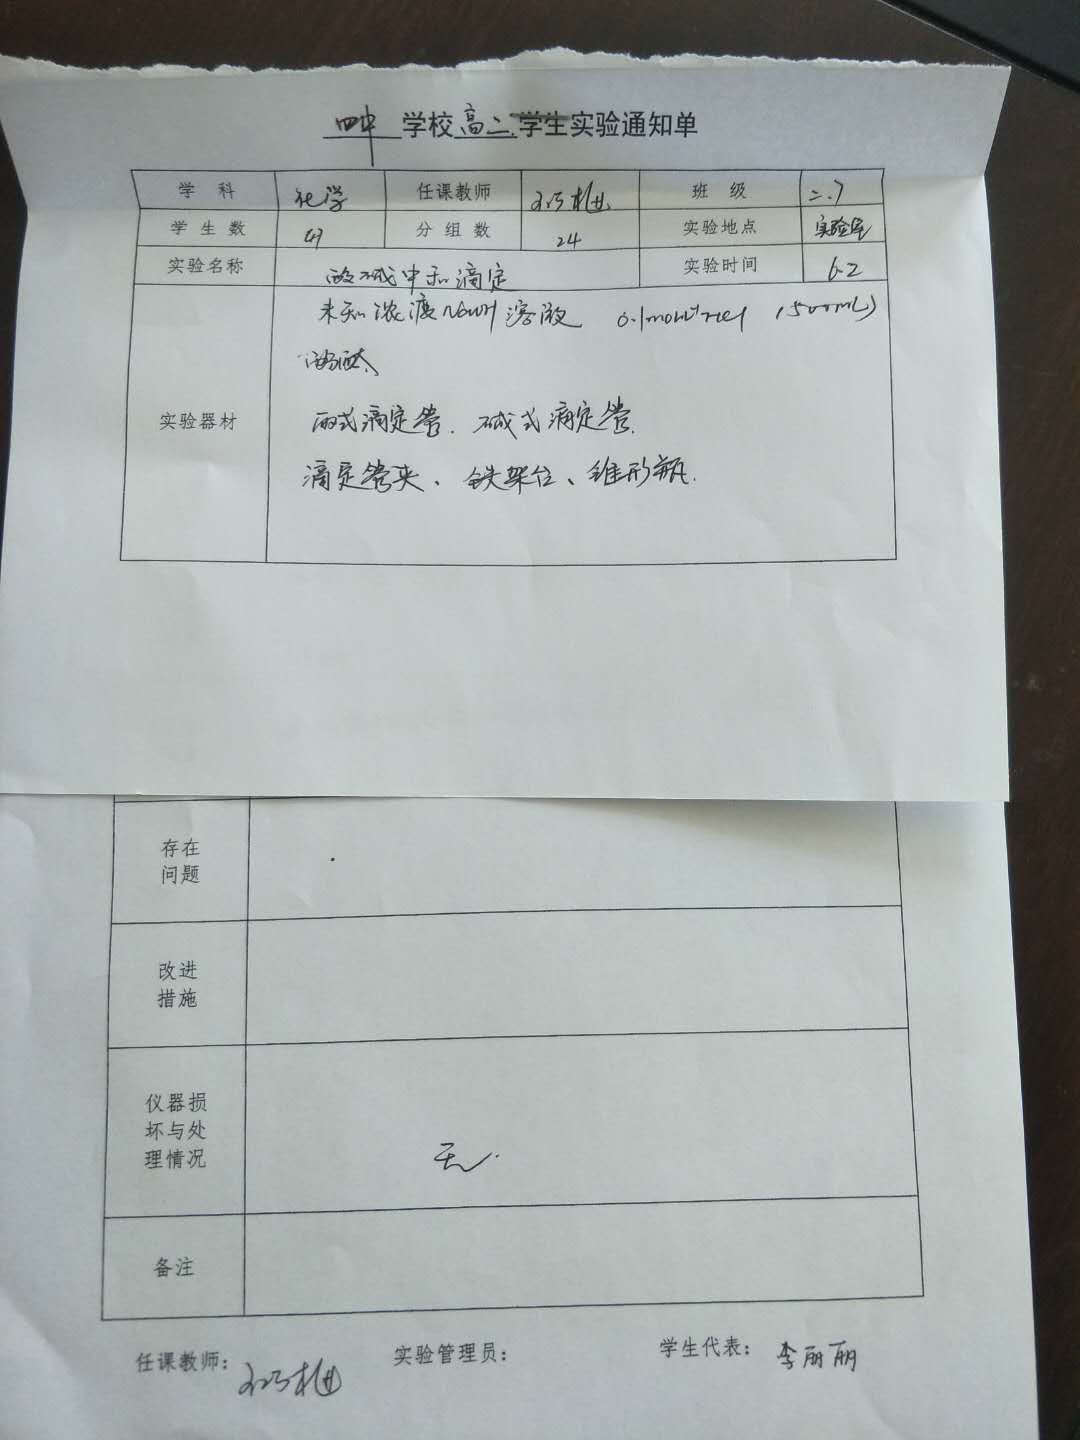 四中 学校 高二 学生实验通知单
学 科 化学 任课教师 班 级 二.7
学 生 数 分 组 数 24 实验地点 实验室
实验名称 酸碱中和滴定 实验时间 6.2
未知浓度NaOH溶液 0.1mol/L HCl (500mL)
酚酞
实验器材
酸式滴定管、碱式滴定管、
滴定管夹、铁架台、锥形瓶.
存在
问题
改进
措施
仪器损
坏与处
理情况
无.
备注
任课教师: 实验管理员: 学生代表: 李丽丽